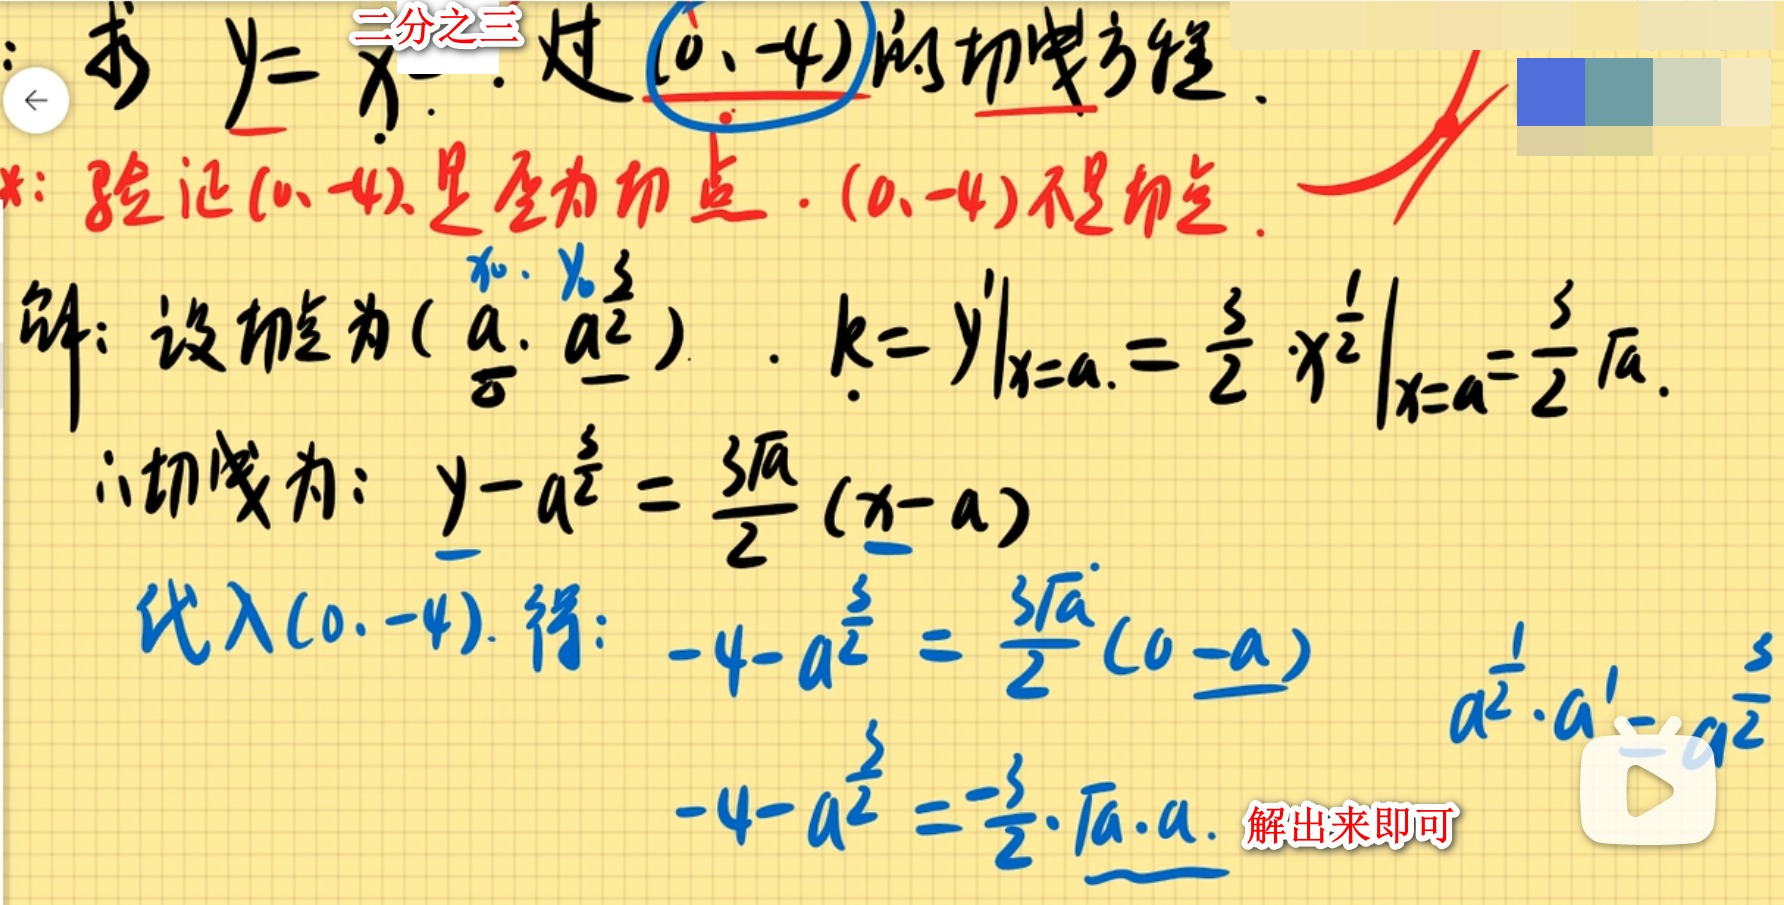 : 求 y = x^二分之三 . 过 (0、-4) 的切线方程 .
*: 验证(0、-4)、是否为切点 . (0、-4) 不是切点 .
x₀ . y₀
解: 设切点为 ( a . a^{3/2} ) . k = y'|_{x=a} . = 3/2 · x^{1/2} |_{x=a} = 3/2 √a .
∴切线为: y - a^{3/2} = 3√a/2 (x - a)
代入(0. -4). 得: -4 - a^{3/2} = 3√a/2 (0 - a)
a^{1/2} · a^1 = a^{3/2}
-4 - a^{3/2} = -3/2 · √a · a . 解出来即可